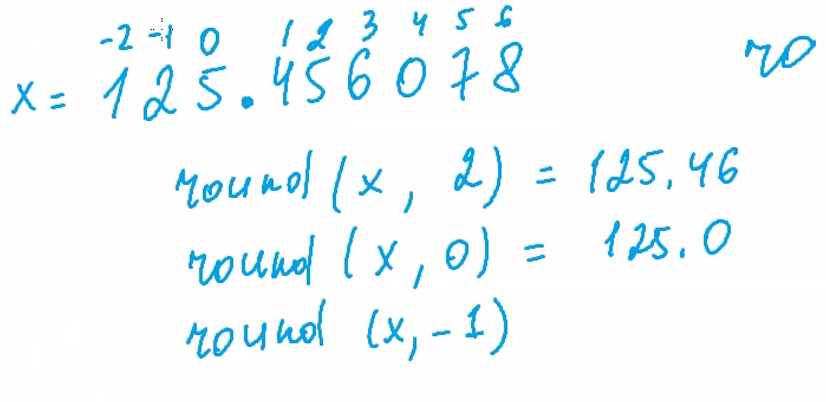 -2 -1 0 1 2 3 4 5 6
x = 125.456078 ro
round (x, 2) = 125.46
round (x, 0) = 125.0
round (x, -1)